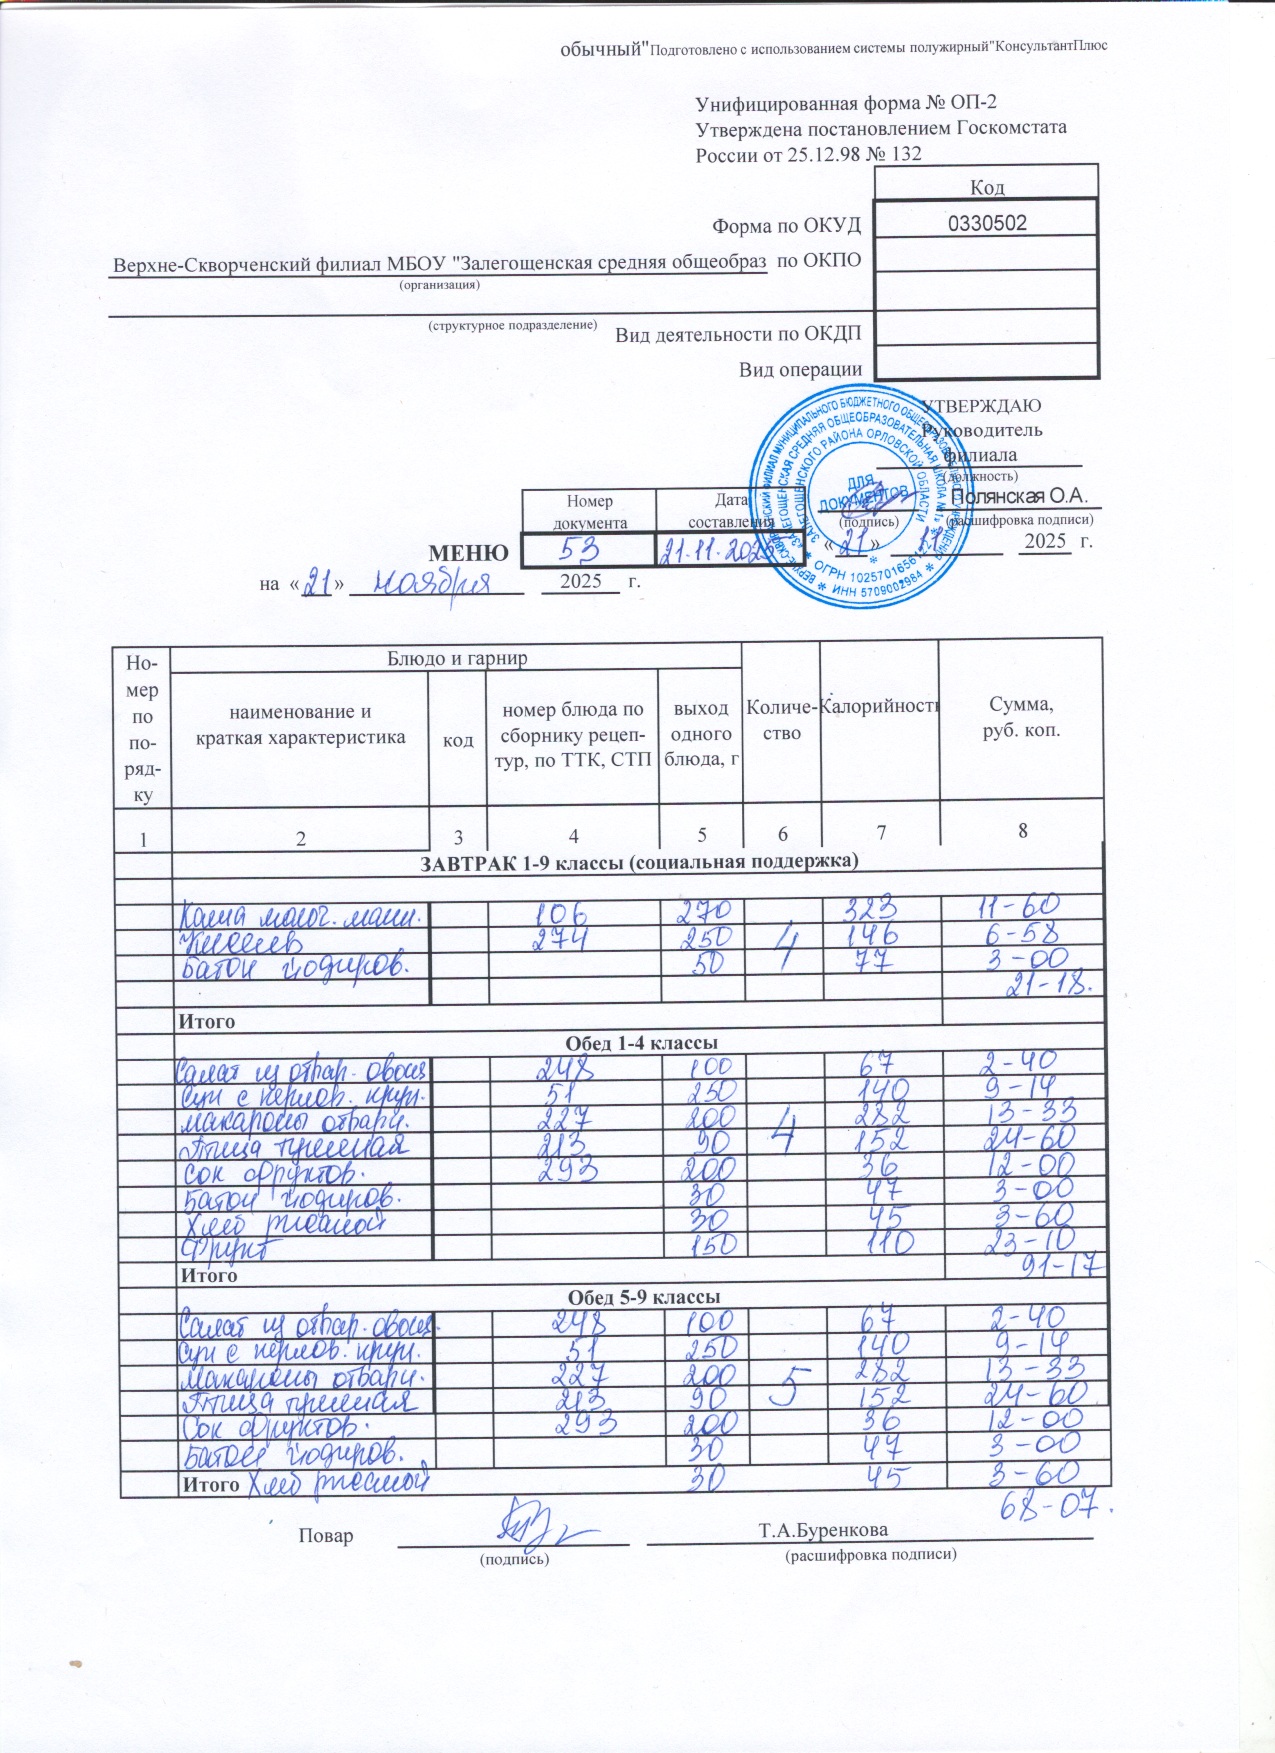 обычный"Подготовлено с использованием системы полужирный"КонсультантПлюс
Унифицированная форма № ОП-2
Утверждена постановлением Госкомстата
России от 25.12.98 № 132
Код
Форма по ОКУД 0330502
Верхне-Скворченский филиал МБОУ "Залегощенская средняя общеобраз по ОКПО
(организация)
(структурное подразделение)
Вид деятельности по ОКДП
Вид операции
УТВЕРЖДАЮ
Руководитель
филиала
(должность)
Полянская О.А.
(подпись) (расшифровка подписи)
«21» 11 2025 г.
ДЛЯ
ДОКУМЕНТОВ
Номер документа
Дата составления
МЕНЮ 53 21.11.2025
на «21» ноября 2025 г.
Но-
мер
по
по-
ряд-
ку
Блюдо и гарнир
наименование и
краткая характеристика
код
номер блюда по
сборнику рецеп-
тур, по ТТК, СТП
выход
одного
блюда, г
Количе-
ство
Калорийность
Сумма,
руб. коп.
1 2 3 4 5 6 7 8
ЗАВТРАК 1-9 классы (социальная поддержка)
Каша молоч. манн. 106 270 323 11-60
Кисель 274 250 4 146 6-58
Батон йодиров. 50 77 3-00
21-18.
Итого
Обед 1-4 классы
Салат из отвар. овощ 248 100 67 2-40
Суп с перлов. круп. 51 250 140 9-14
Макароны отварн. 227 200 4 282 13-33
Птица тушеная 213 90 152 24-60
Сок фруктов. 293 200 36 12-00
Батон йодиров. 30 47 3-00
Хлеб ржаной 30 45 3-60
Фрукт 150 110 23-10
Итого 91-17
Обед 5-9 классы
Салат из отвар. овощ. 248 100 67 2-40
Суп с перлов. круп. 51 250 140 9-14
Макароны отварн. 227 200 5 282 13-33
Птица тушеная 213 90 152 24-60
Сок фруктов. 293 200 36 12-00
Батон йодиров. 30 47 3-00
Итого Хлеб ржаной 30 45 3-60
68-07.
Повар Т.А.Буренкова
(подпись) (расшифровка подписи)